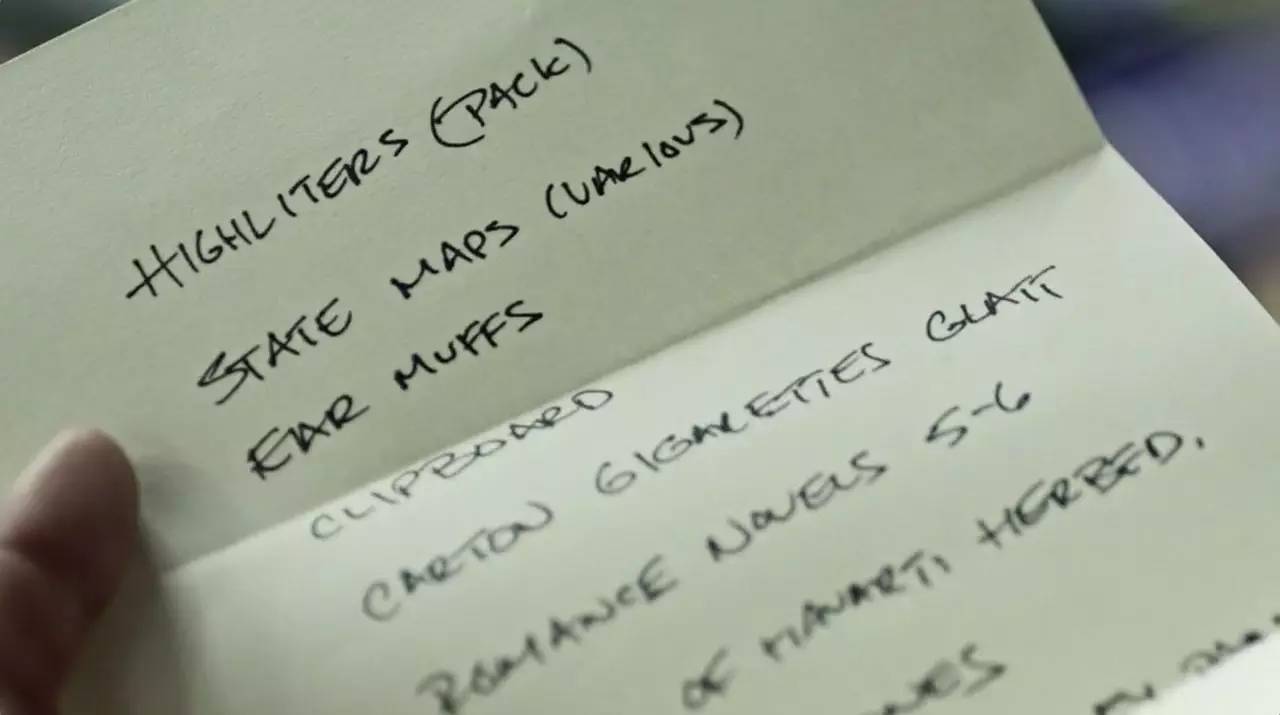 HIGHLITERS (PACK)
STATE MAPS (VARIOUS)
EAR MUFFS
CLIPBOARD
CARTON GIGARETTES GLATT
ROMANCE NOVELS 5-6
OF HERBED,